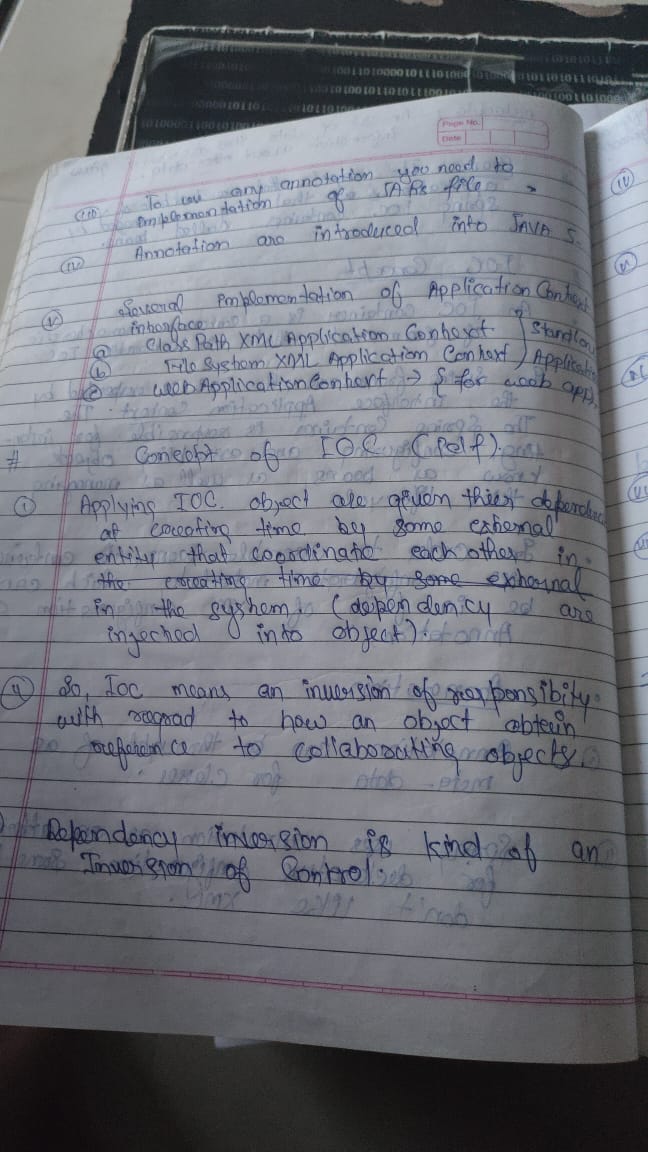 Page No.
Date
(iii) To use any annotation you need to
implemendation of JARs file
(iv) Annotation are introduced into JAVA 5.
(v) Several implementation of Application Context
interface
(a) Class Path XML Application Context
(b) File System XML Application Context } Standlon Applicatio
(c) web Application Context → for woob app
# Concept of IOC (Self).
(i) Applying IOC. object are given thier dependenc
at creating time by some exhernal
entity that coordinate each other in
the creating time by some exhernal
in the system. (dependenicy are
injeched into object).
(ii) So, Ioc means an inversion of responsibity
with reagrad to how an object obtain
referenc to collaborating objects
Dependency inversion is kind of an
Inversion of Control